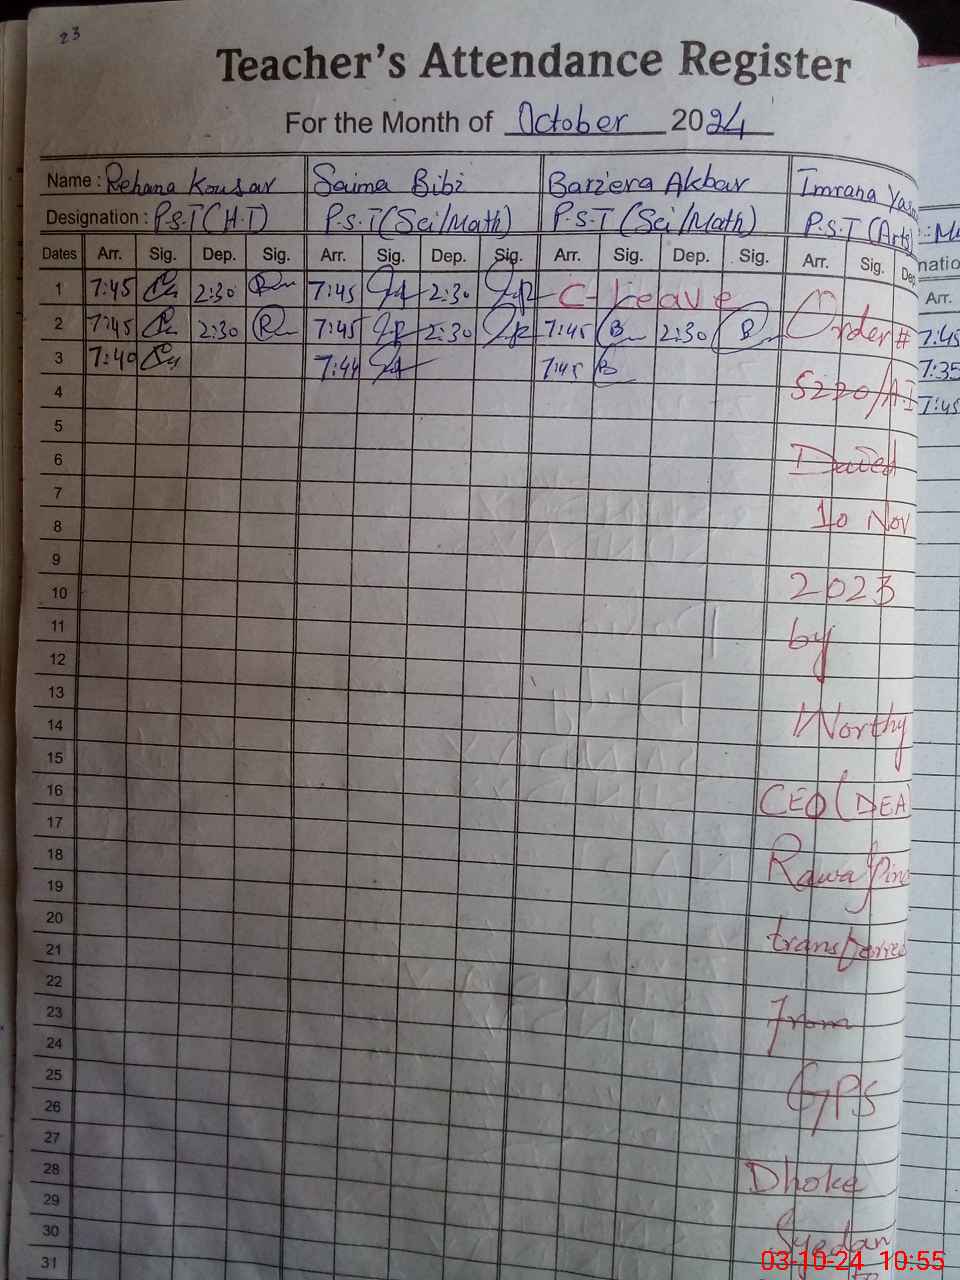 23
Teacher's Attendance Register
For the Month of October 2024
Name : Rehana Kousar Saima Bibi Bariera Akbar Imrana Yasm
Designation : P.S.T (H.T) P.S.T (Sci/Math) P.S.T (Sci/Math) P.S.T (Arts)
Dates Arr. Sig. Dep. Sig. Arr. Sig. Dep. Sig. Arr. Sig. Dep. Sig. Arr. Sig. Dep
1 7:45 2:30 7:45 2:30 C-Leave
2 7:45 2:30 7:45 2:30 7:45 B 2:30 B Order #
3 7:40 7:44 7:45 B
4 5220/A.I
5
6 Dated
7
8 10 Nov
9
10 2023
11 by
12
13
14 Worthy
15
16 CEO (DEA)
17
18 Rawalpind
19
20 transferred
21
22
23 From
24
25 GPS
26
27
28 Dhoke
29
30 Syedan
31
: Ma
natio
Arr.
7:45
7:35
7:45
03-10-24 10:55